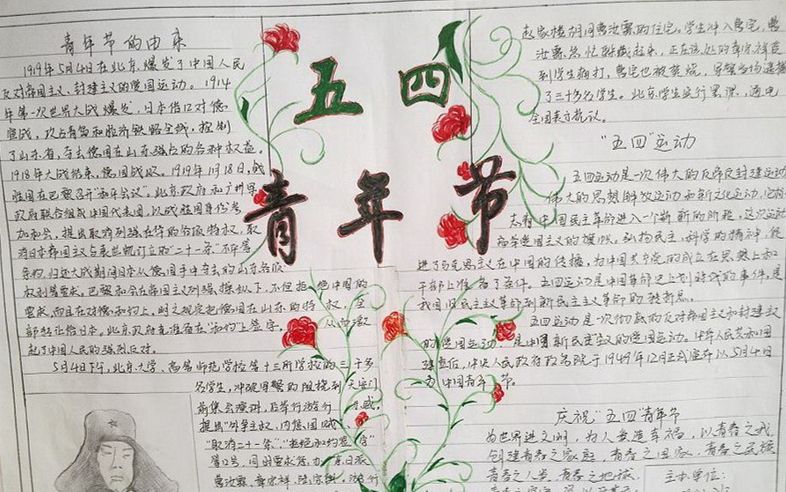 青年节的由来
1919年5月4日在北京,爆发了中国人民
反对帝国主义、封建主义的爱国运动。1914
年第一次世界大战爆发,日本借口对德
宣战,攻占青岛和胶济铁路全线,控制
了山东省,夺去德国在山东强占的各种权益。
1918年大战结束,德国战败。1919年1月18日,战
胜国在巴黎召开"和平会议"。北京政府和广州军
政府联合组成中国代表团,以战胜国身份参
加和会,提出取消列强在华的各项特权,取
消日本帝国主义与袁世凯订立的"二十一条"不平等
条约,归还大战期间日本从德国手中夺去的山东各项
权利等要求。巴黎和会在帝国主义列强操纵下,不但拒绝中国的
要求,而且在对德和约上,明文规定把德国在山东的特权,全
部转让给日本。北京政府竟准备在"和约"上签字,从而激
起了中国人民的强烈反对。
5月4日下午,北京大学、高等师范学校等十三所学校的三千多
名学生,冲破军警的阻挠到天安门
前集会演讲,后举行游行示威,
提出"外争主权,内惩国贼",
"取消二十一条","拒绝和约签字"
等口号,同时要求惩办亲日派
曹汝霖、章宗祥、陆宗舆,游行
五四
青年节
赵家楼胡同曹汝霖的住宅。学生冲入曹宅,曹
汝霖急忙躲藏起来,正在该处的章宗祥受
到学生痛打,曹宅也被焚烧,军警当场逮捕
了三十多名学生。北京学生实行罢课,通电
全国表示抗议。
"五四"运动
五四运动是一次伟大的反帝反封建运动
伟大的思想解放运动和新文化运动,它标
志着中国民主革命进入一个崭新的阶段,这次运动
高举爱国主义的旗帜。弘扬民主,科学的精神,促
进了马克思主义在中国的传播,为中国共产党的成立在思想上和
干部上准备了条件。五四运动是中国革命史上划时代的事件,是
我国旧民主主义革命到新民主主义革命的转折点。
五四运动是一次彻底的反对帝国主义和封建主义
的爱国运动,是中国新民主主义的爱国运动。中华人民共和国
建立后,中央人民政府政务院于1949年12月正式宣布以5月4日
为中国青年节。
庆祝"五四"青年节
为世界进文明,为人类造幸福,以青春之我,
创建青春之家庭,青春之国家,青春之民族
青春之人类,青春之地球,
主办单位: